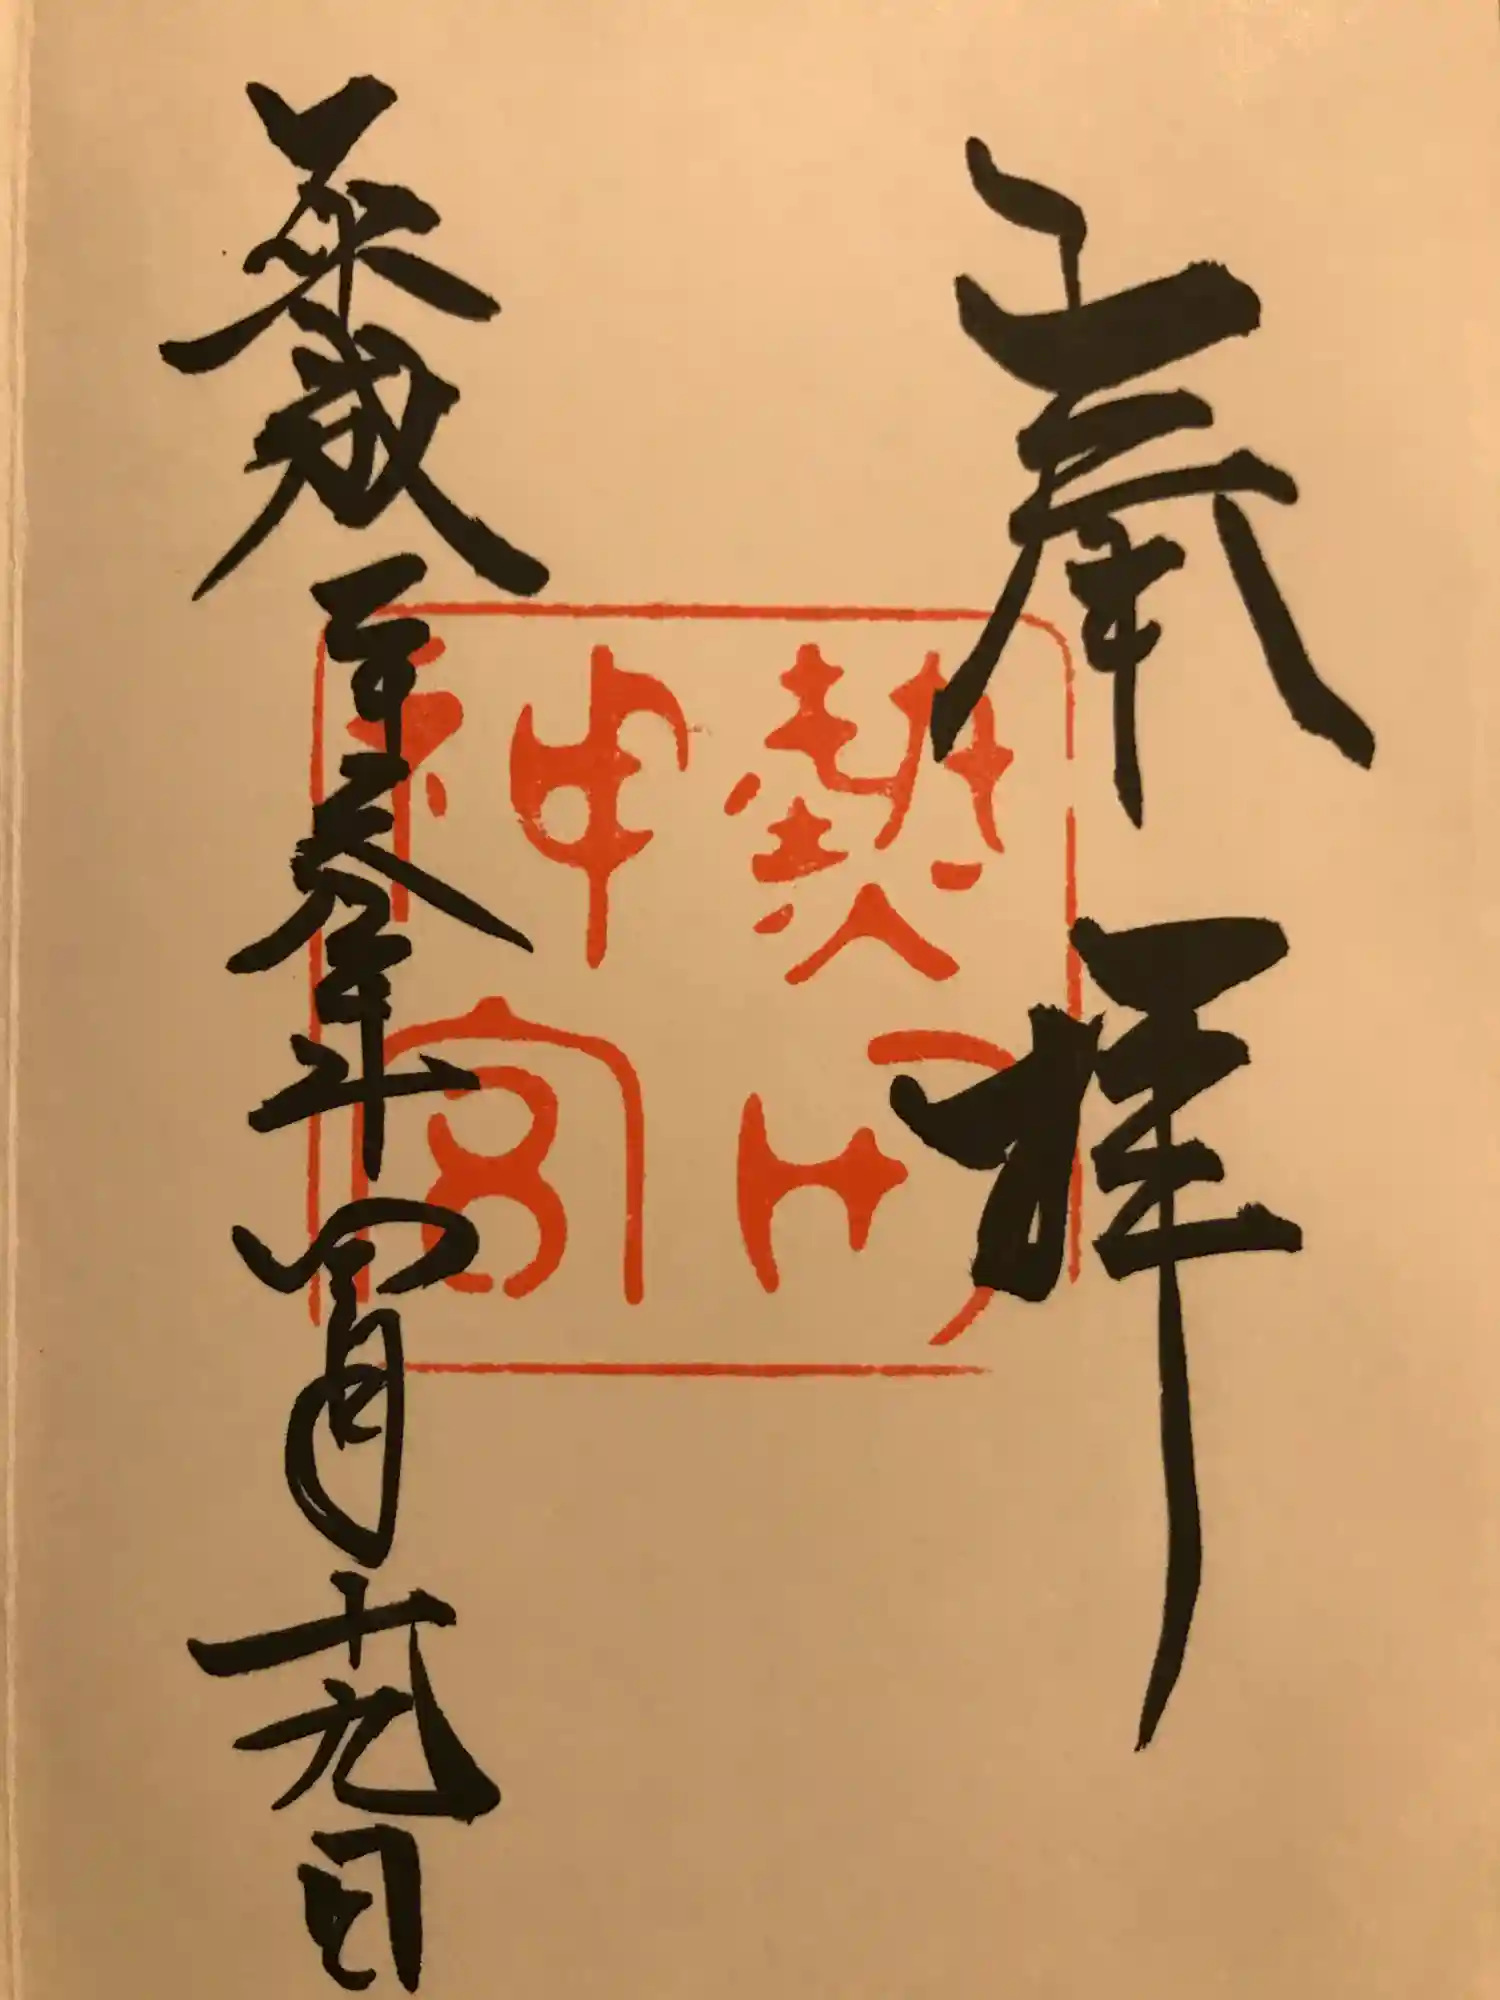 奉拝
熱田
神宮
平成年四月十九日